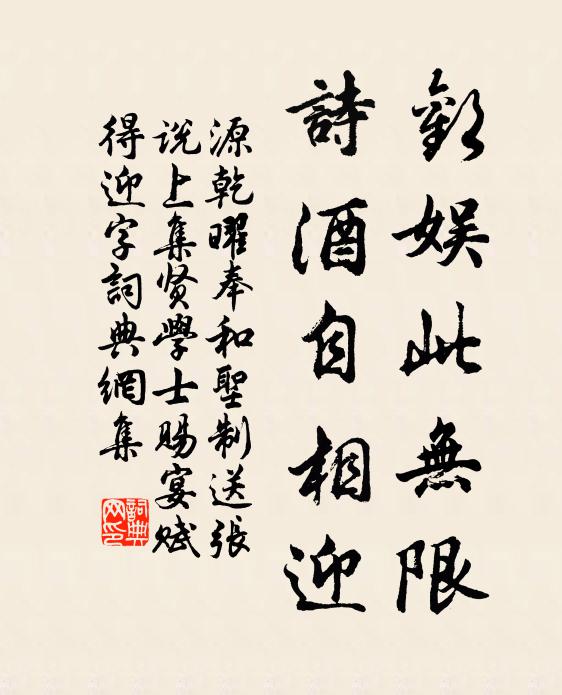 歡娛此無限
詩酒自相迎
源乾曜奉和聖制送張
说上集贤學士賜宴赋
得迎字詞典網集
詞典
网印